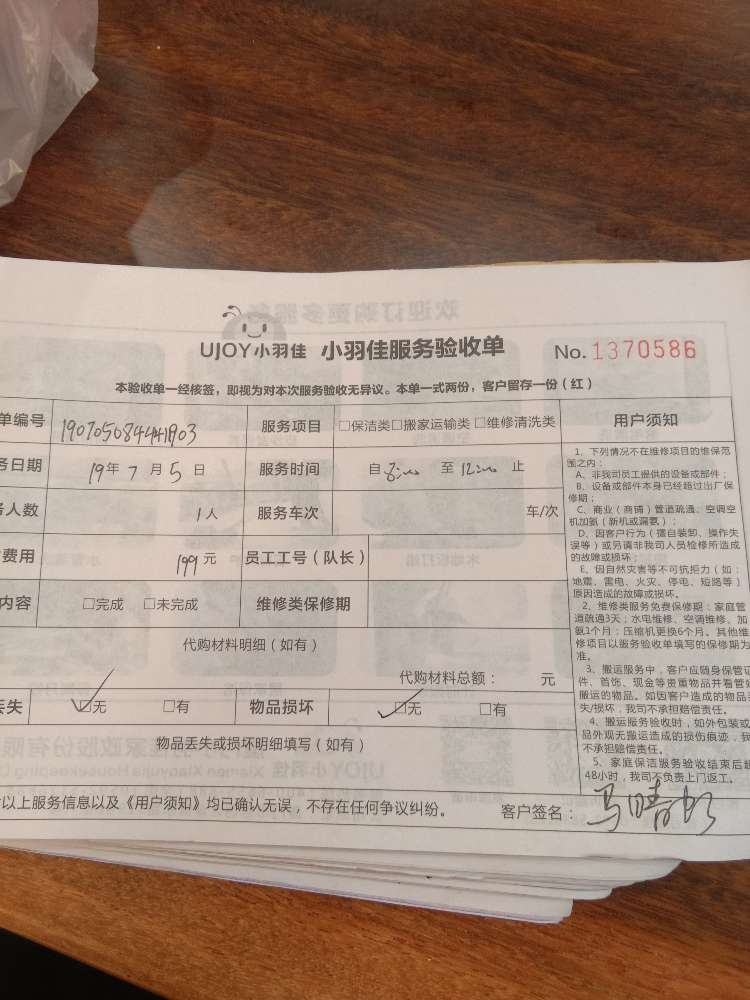 UJOY小羽佳 小羽佳服务验收单 No. 1370586
本验收单一经核签，即视为对本次服务验收无异议。本单一式两份，客户留存一份（红）
单编号 服务项目 □保洁类□搬家运输类□维修清洗类 用户须知
日期 19年7月5日 服务时间 自 至 止
人数 1人 服务车次 车/次
费用 199元 员工工号（队长）
内容 □完成 □未完成 维修类保修期
代购材料明细（如有）
代购材料总额： 元
丢失 ☑无 □有 物品损坏 ☑无 □有
物品丢失或损坏明细填写（如有）
以上服务信息以及《用户须知》均已确认无误，不存在任何争议纠纷。 客户签名：
1、下列情况不在维修项目的维保范
围之内：
A、非我司员工提供的设备或部件；
B、设备或部件本身已经超过出厂保
修期；
C、商业（商铺）管道疏通、空调空
机加氨（新机或漏氨）；
D、因客户行为（擅自装卸、操作失
误等）或另请非我司人员检修所造成
的故障或损坏；
E、因自然灾害等不可抗拒力（如：
地震、雷电、火灾、停电、短路等）
原因造成的故障或损坏。
2、维修类服务免费保修期：家庭管
道疏通3天；水电维修、空调维修、加
氨1个月；压缩机更换6个月。其他维
修项目以服务验收单填写的保修期为
准。
3、搬运服务中，客户应随身保管证
件、首饰、现金等贵重物品并看管好
搬运的物品。如因客户造成的物品丢
失/损坏，我司不承担赔偿责任。
4、搬运服务验收时，如外包装或
品外观无搬运造成的损伤痕迹，我
不承担赔偿责任。
5、家庭保洁服务验收结束后超
48小时，我司不负责上门返工。